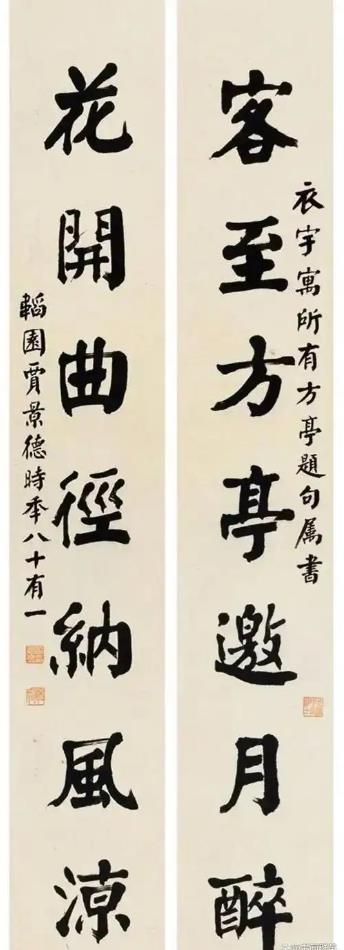 衣宇寓所有方亭題句属書
客至方亭邀月醉
花開曲徑納風涼
韜園賈景德時年八十有一